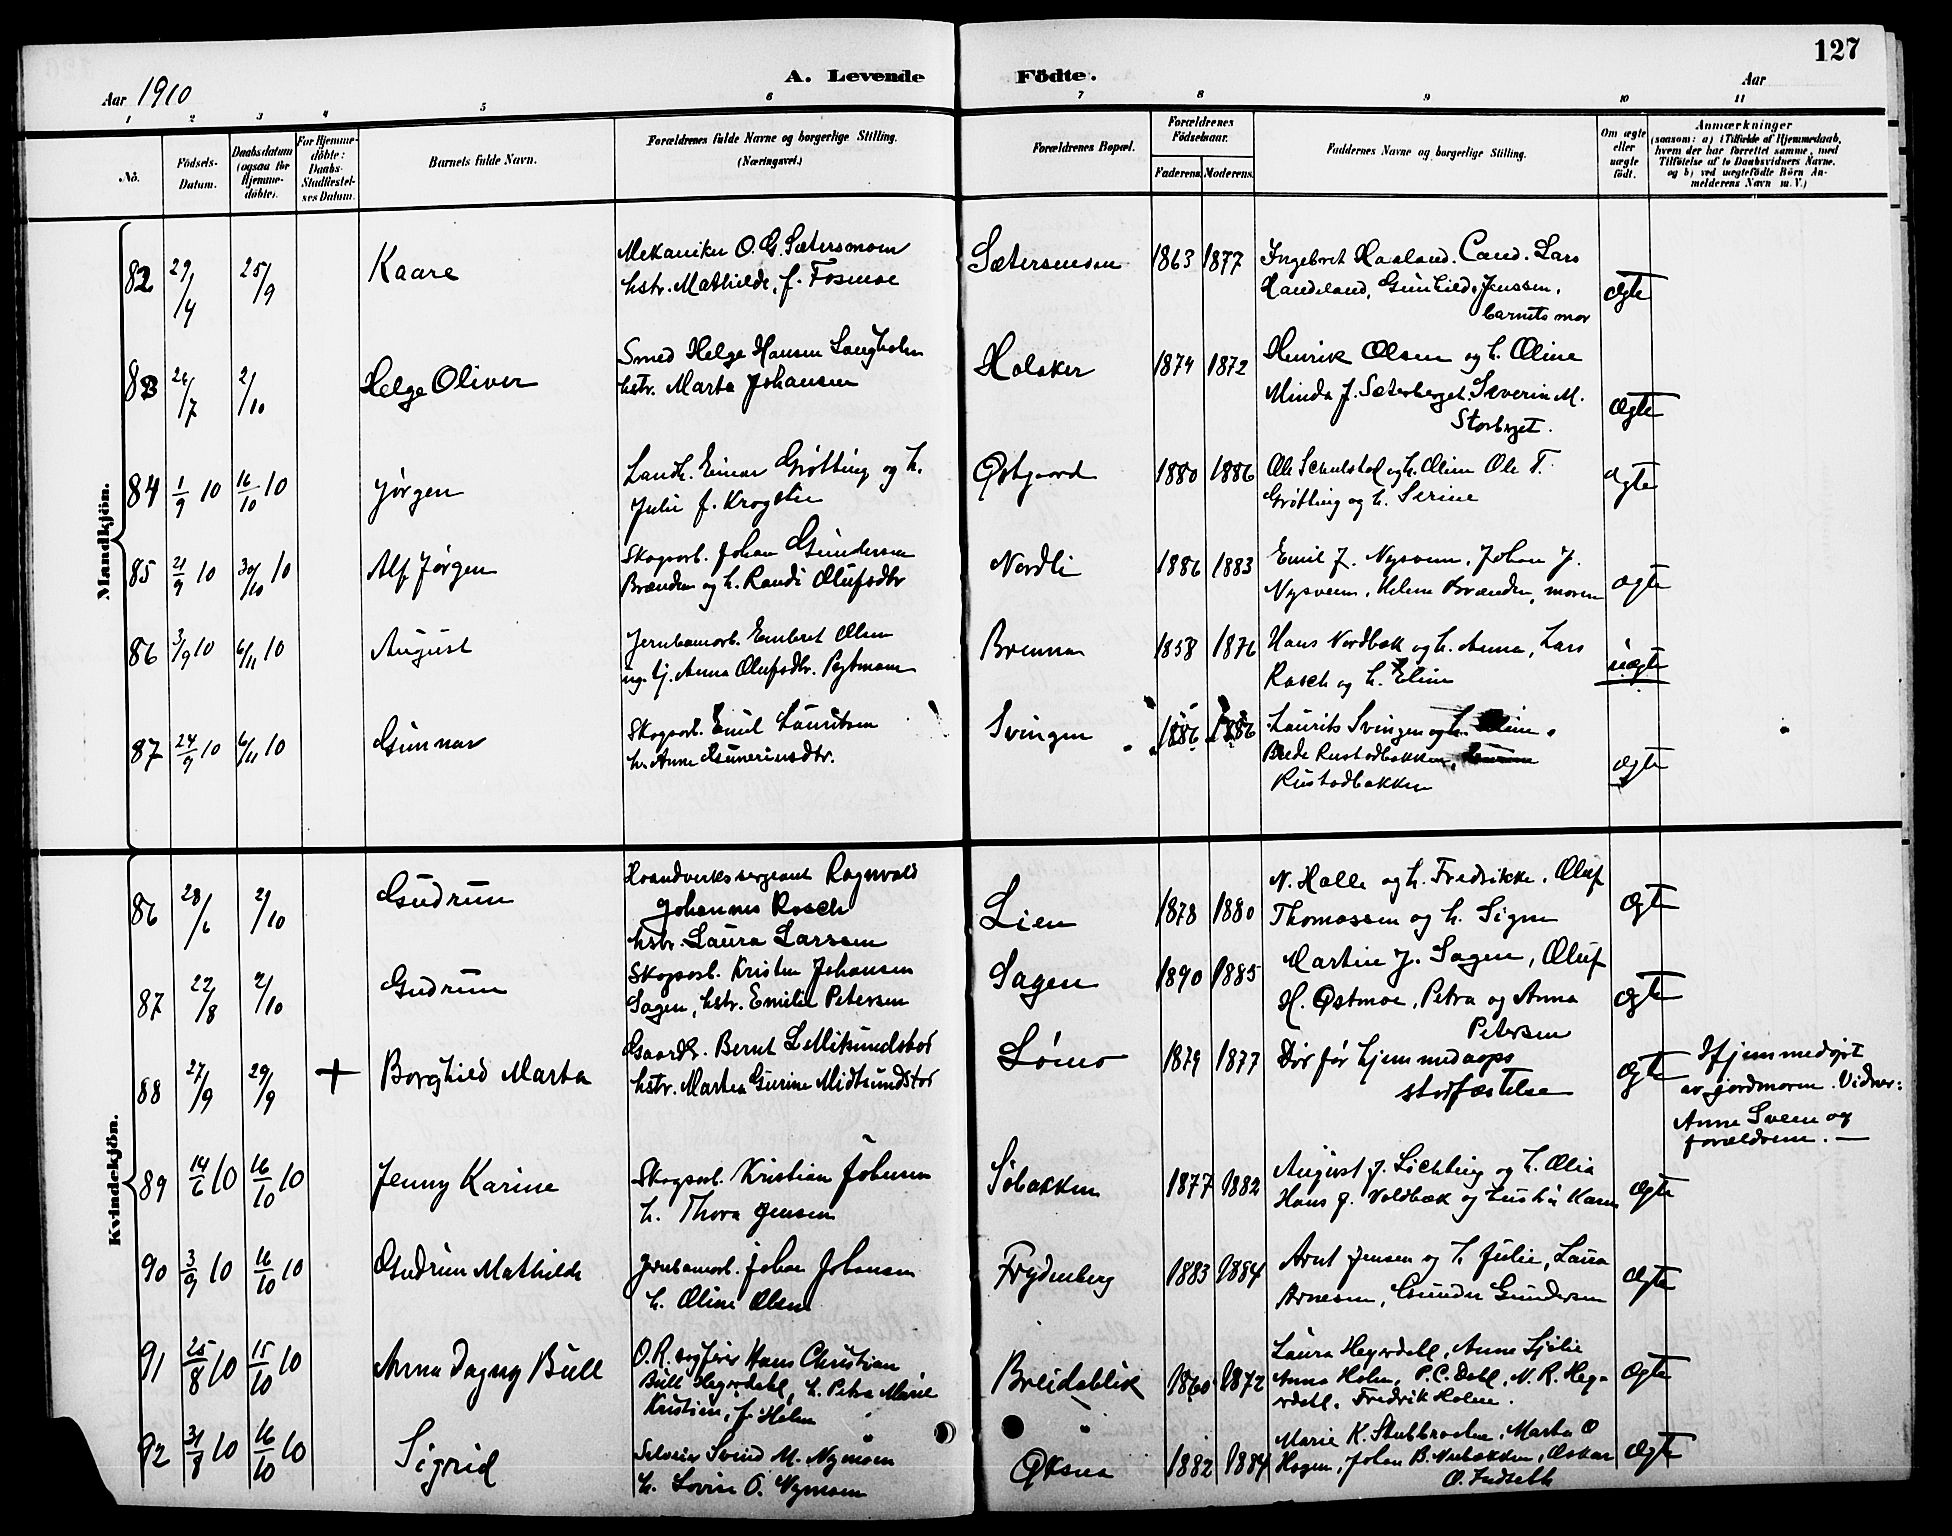 127
Aar 1910
A. Levende Födte.
Aar
1 2 3 4 5 6 7 8 9 10 11
No.
Födsels-Datum.
Daabsdatum (ogsaa for Hjemme-döbte).
For Hjemme-döbte: Daabs-Stadfæstel-ses Datum.
Barnets fulde Navn.
Forældrenes fulde Navne og borgerlige Stilling. (Næringsvei.)
Forældrenes Bopæl.
Forældrenes Födselsaar.
Faderens. Moderens.
Faddernes Navne og borgerlige Stilling.
Om ægte eller uægte født.
Anmærkninger
(saasom: a) i Tilfælde af Hjemmedaab,
hvem der har forrettet samme, med
Tilföielse af to Daabsvidners Navne,
og b) ved uægtefödte Börn An-
melderens Navn m. V.)
Mandkjön.
82 29/4 25/9 Kaare
Mekaniker O. G. Sætersmoen
hstr. Mathilde, f. Fosmoe
Sætersmoen 1863 1877
Ingebret Haaland. Cand. Lars
Handeland, Gunhild Jenssen,
barnets mor
ægte
83 26/7 2/10 Helge Oliver
Smed Helge Hansen Langholm
hstr. Marta Johansen
Holaker 1874 1872
Henrik Olsen og h. Oline
Minda J. Sæterberget. Severin M.
Storbyget.
ægte
84 1/9 10 16/10 10 Jørgen
Landh. Einar Grötting og h.
Julie f. Krogstie
Østgaard 1880 1886
Ole Schulstad og h. Oline Ole T.
Grøtting og h. Serine
ægte
85 21/9 10 30/10 10 Alf Jørgen
Skogsarb. Johan Gundersen
Brænden og h. Randi Olufsdtr
Nordli 1886 1883
Emil J. Nysveen, Johan J.
Nysveen, Helene Brænden, moren
ægte
86 3/9 10 6/11 10 August
Jernbanearb. Embret Olsen
ug. tj. Anna Olufsdtr. Pytmoen
Brenna 1858 1876
Hans Nordbæk og h. Anna, Lars
Rasch og h. Eline
uægte
87 24/9 10 6/11 10 Gunnar
Skogsarb. Emil Lauritsen
h. Anne Guneriusdtr.
Svingen 1886 1886
Laurits Svingen og h.
Brede Rustadbakken,
Rustadbakken
ægte
Kvindekjön.
86 28/6 2/10 Gudrun
Haandverkssergeant Ragnvald
Johannes Rosch
hstr. Laura Larssen
Lien 1878 1880
N. Halle og h. Fredrikke, Oluf
Thomassen og h. Signe
ægte
87 22/8 2/10 Gudrun
Skogsarb. Kristen Johansen
Sagen, hstr. Emilie Petersen
Sagen 1890 1885
Martin J. Sagen, Oluf
H. Østmoe, Petra og Anna
Petersen
ægte
88 27/9 29/9 + Borghild Marta
Gaardbr. Bernt L Mitsundstad
hstr. Martea Gurine Midtsundstad
Lømo 1879 1877
Dør før hjemmedaaps
stadfæstelse
ægte
Hjemmedøpt
av jordmoren. Vidner:
Anne Sveen og
forældrene. —
89 14/6 10 16/10 10 Jenny Karine
Skogsarb. Kristian Johnsen
h. Thora Jensen
Søbakken 1877 1882
August J. Lichting og h. Olia
Hans J. Voldbæk og hustru Karen
ægte
90 3/9 10 16/10 10 Gudrun Mathilde
Jernbanearb. Johan Johansen
h. Oline Olsen
Frydenberg 1883 1884
Arnt Jensen og h. Julie, Laura
Arnesen, Gunder Gundersen
ægte
91 25/8 10 15/10 10 Anna Dagny Bull
O.R. sagfører Hans Christian
Bull Hegrdahl, h. Petra Marie
Kristine, f. Holm
Breidablik 1860 1872
Laura Hegrdahl, Anne Ljølie
Anna Holm, P.C. Dahl, N. R. Heg-
rdahl. Fredrik Holm.
ægte
92 31/8 10 16/10 10 Sigrid
Selveier Svend M. Nymoen
h. Lovise O. Nymoen
Øksna 1882 1884
Marie K. Stubbraaten, Marta O
Hagen, Johan B. Nubakken, Oskar
O. Indseth
ægte